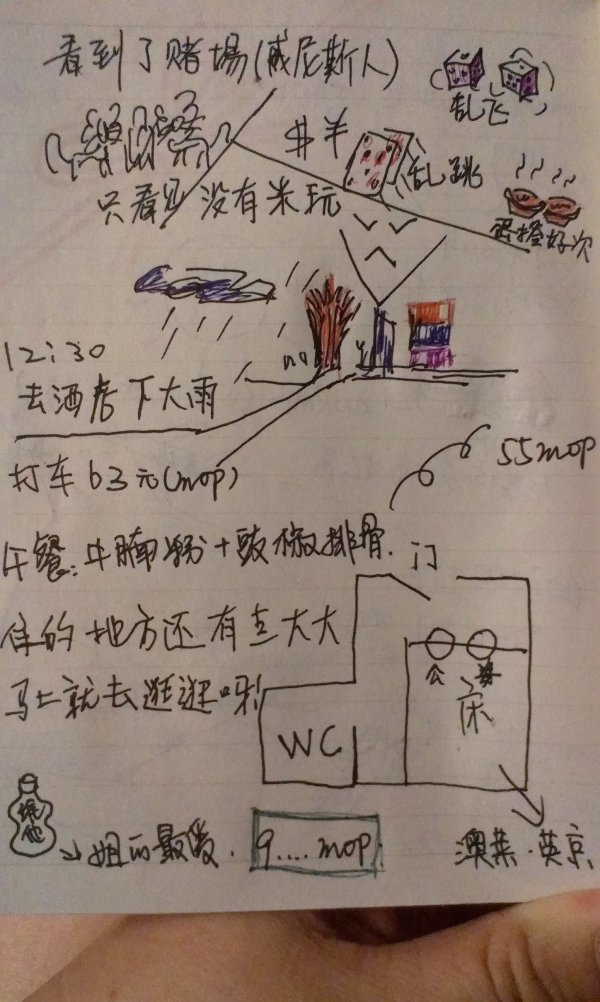 看到了赌場(威尼斯人)
乱飞
$ 羊
乱跳
只看见 没有米玩
蛋橙好次
12:30
去酒店下大雨
打车63元(mop)
55mop
午餐:牛腩粉+豉椒排骨.
门
住的地方还有
大大
马上就去逛逛呀!
公
床
WC
维他
姐的最爱.
9....mop
澳莱·英京